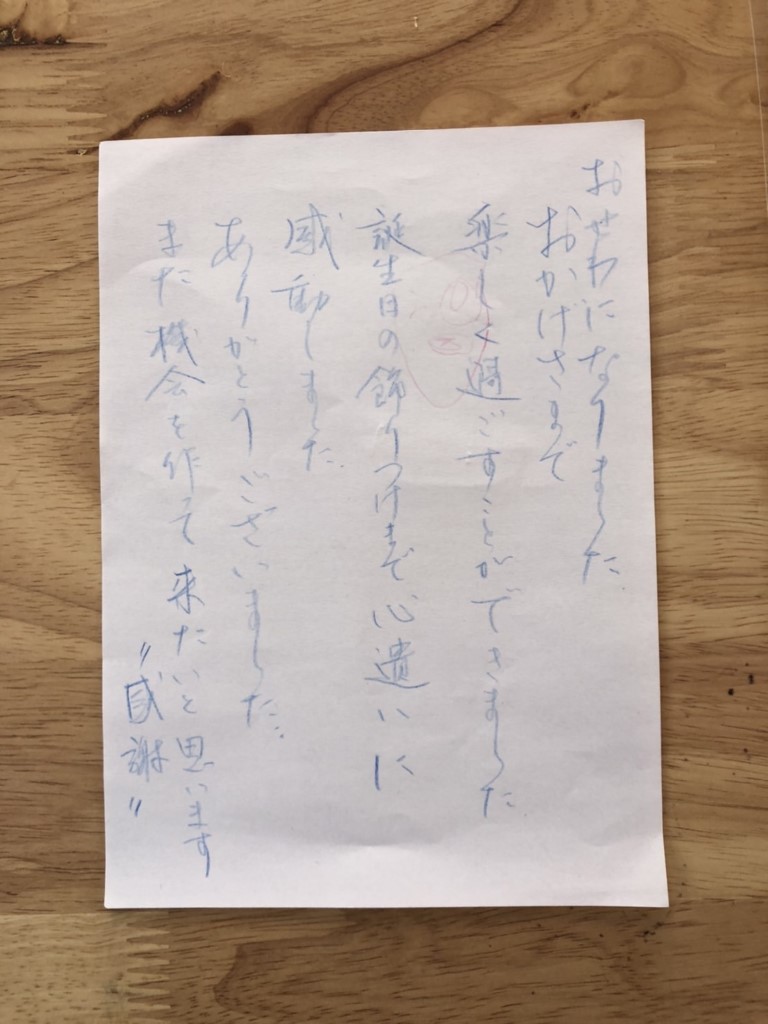 おせわになりました
おかげさまで
楽しく過ごすことができました
誕生日の飾りつけまで心遣いに
感動しました
ありがとうございました..
また機会を作って来たいと思います
"感謝"